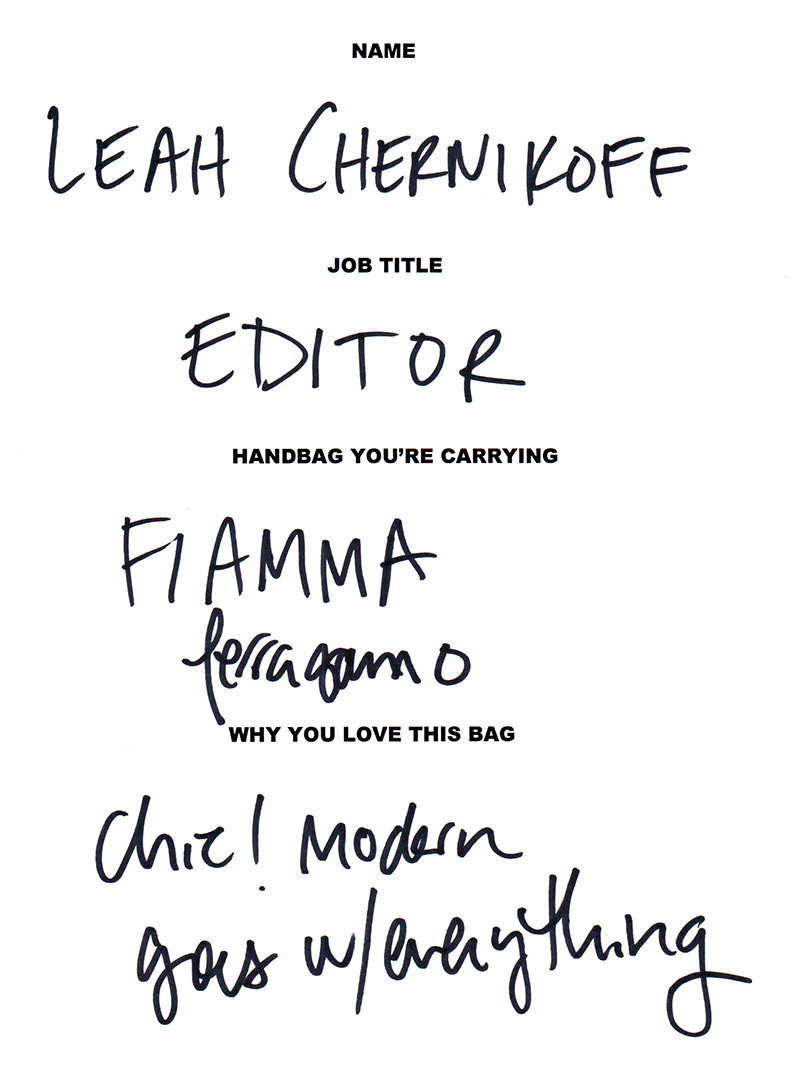 NAME
LEAH CHERNIKOFF
JOB TITLE
EDITOR
HANDBAG YOU'RE CARRYING
FIAMMA
ferragamo
WHY YOU LOVE THIS BAG
Chic! Modern
goes w/everything